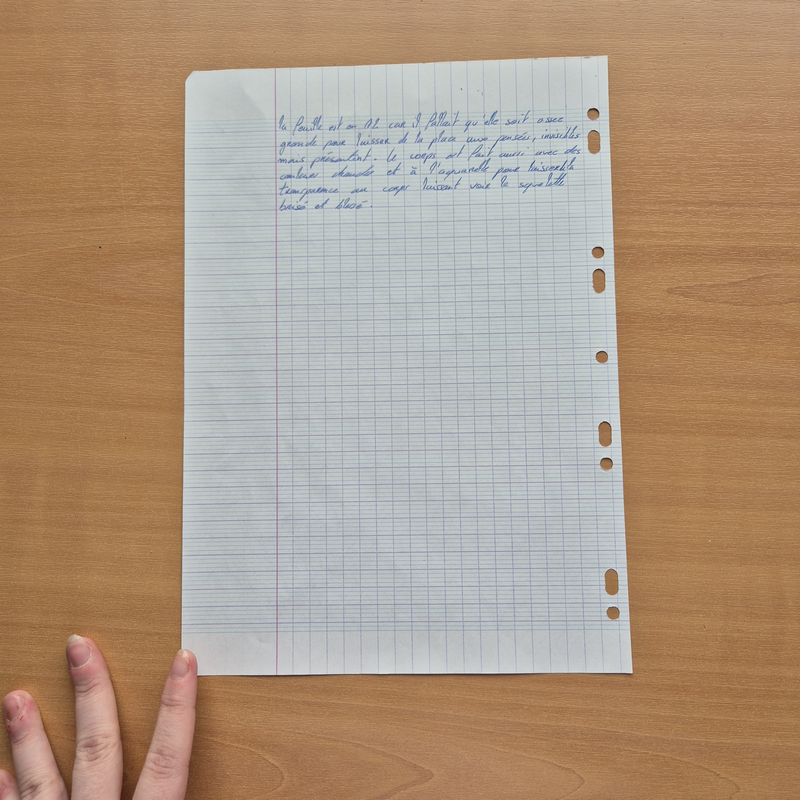 la feuille est en A2 car il fallait qu'elle soit assee
grande pour laisser de la place aux pensées, invisibles
mais présentent. Le corps est fait aussi avec des
couleur chaude et à l'aquarelle pour laisser la
transparence au corps laissant voir le squelette
brisé et blessé.